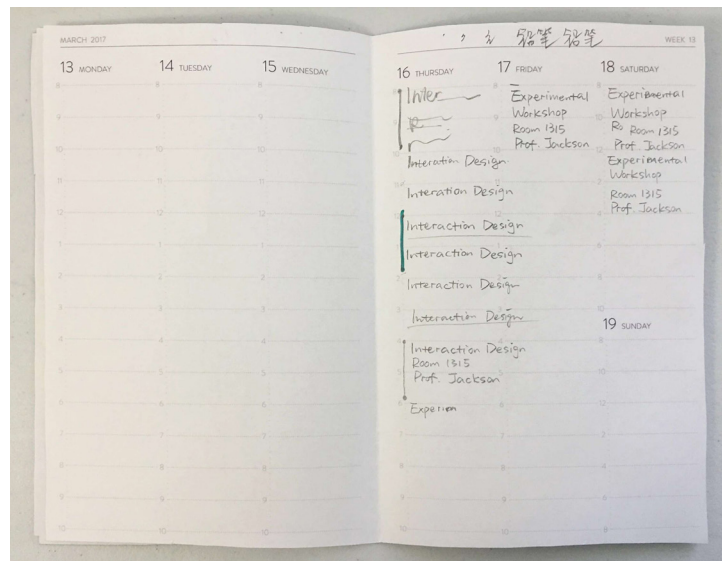 MARCH 2017
13 MONDAY
14 TUESDAY
15 WEDNESDAY
8
9
10
11
12
1
2
3
4
5
6
7
8
9
10
铅笔 铅笔
WEEK 13
16 THURSDAY
Inter
Interation Design
Interation Design
Interaction Design
Interaction Design
Interaction Design
Interaction Design
Interaction Design
Room 1315
Prof. Jackson
Experien
17 FRIDAY
Experimental
Workshop
Room 1315
Prof. Jackson
18 SATURDAY
Experimental
Workshop
Ro Room 1315
Prof. Jackson
Experimental
Workshop
Room 1315
Prof. Jackson
19 SUNDAY